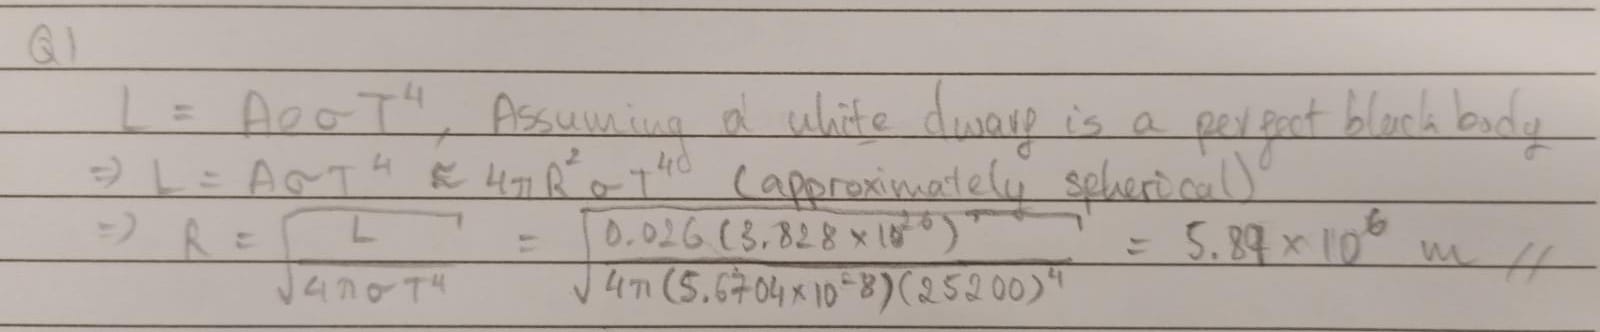 Q1
L = AeσT⁴, Assuming a white dwarf is a perfect black body
⇒ L = AσT⁴ ≈ 4πR²σT⁴ (approximately spherical)
⇒ R = √(L / 4πσT⁴) = √(0.026 (3.828 × 10²⁶) / 4π (5.6704 × 10⁻⁸)(25200)⁴) = 5.89 × 10⁶ m //